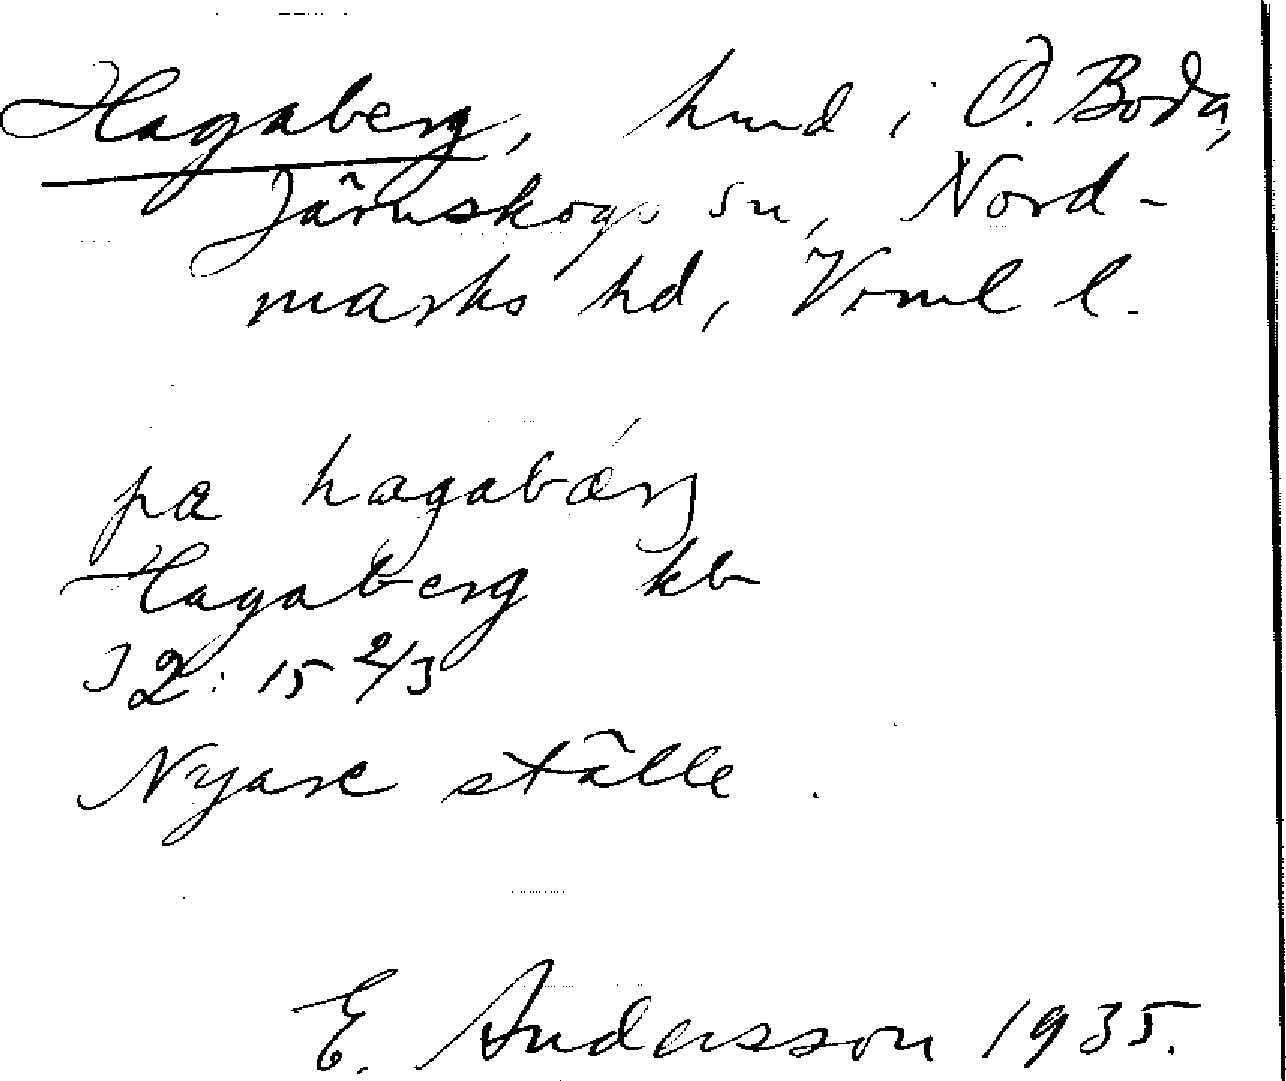 Hagaberg, hmd i Ö. Boda,
Järnskogs sn, Nord-
marks hd, Vrml l.
pæ hagabǽrj
Hagaberg kb
J2: 15 2/3
Nyare ställe.
E. Andersson 1935.